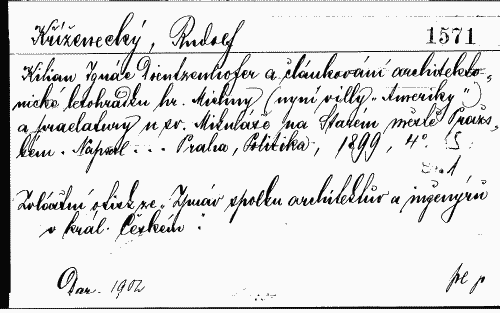 Kříženecký, Rudolf
1571
Kilian Ignác Dientzenhofer a článkování architekto-
nické letohrádku hr. Michny (nyní villy „Ameriky")
a praelatury u sv. Mikuláše na Starém městě Praž-
kém. Napsal ... Praha, Politika, 1899, 4°. (S.
1
Zvláštní otisk ze „Zpráv spolku architektův a inženýrů
v král. Českém".
Dar. 1902